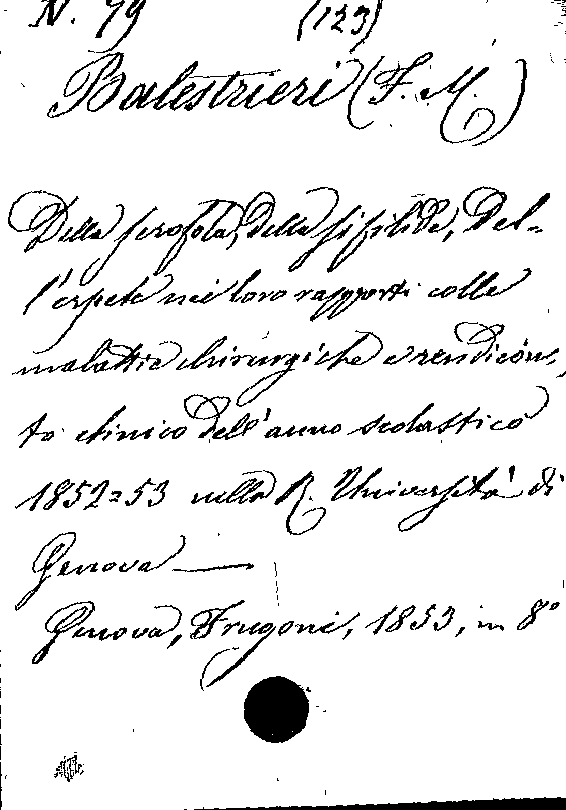 N. 79 (123)
Balestrieri (F. M.)
Della scrofola, della sifilide, del-
l'erpete nei loro rapporti colle
malattie chirurgiche e rendicon-
to clinico dell'anno scolastico
1852=53 nella R. Università di
Genova —
Genova, Frugoni, 1853, in 8°